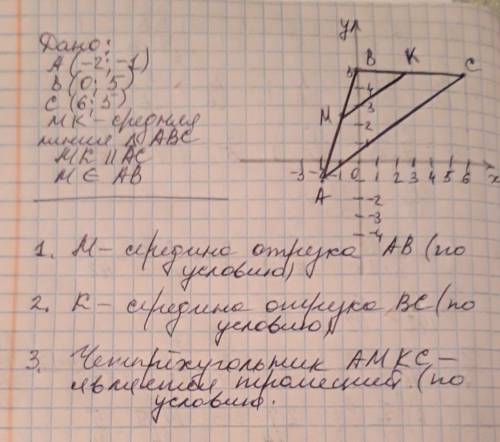 Дано:
A (-2; -1)
B (0; 5)
C (6; 5)
MK – средняя
линия △ABC
MK || AC
M ∈ AB
y
B
K
C
5
4
3
M
2
1
-3 -2 -1 0 1 2 3 4 5 6 x
A
-2
-3
-4
1. M – середина отрезка AB (по
условию)
2. K – середина отрезка BC (по
условию)
3. Четырёхугольник AMKC –
является трапецией (по
условию.